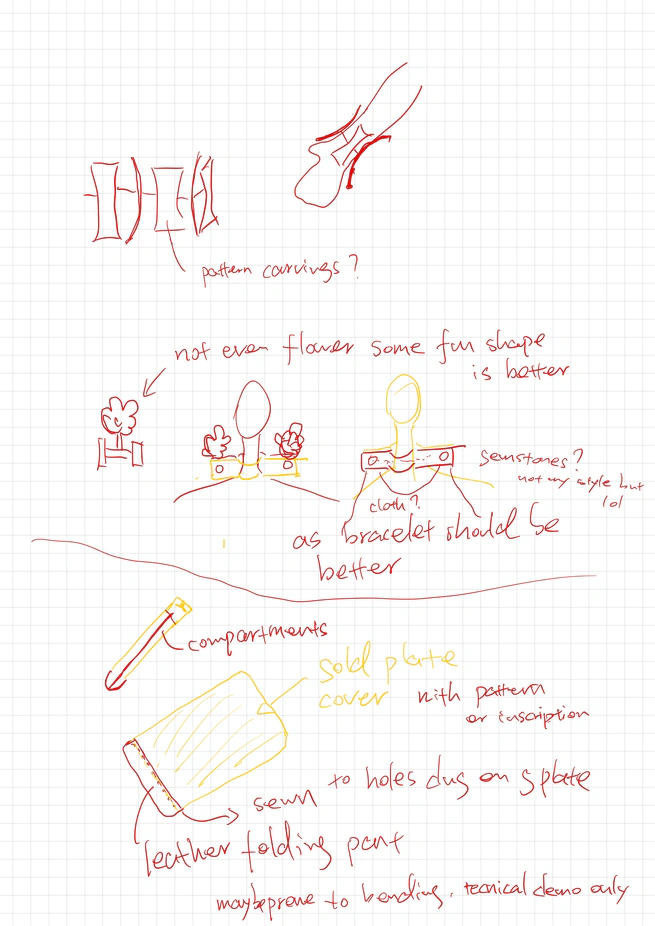 pattern carvings?
not even flower some fun shape
is better
gemstones?
not my style but
lol
cloth?
as bracelet should be
better
compartments
gold plate
cover with pattern
or inscription
sewn to holes dug on gplate
leather folding part
maybe prone to bending. tecnical demo only